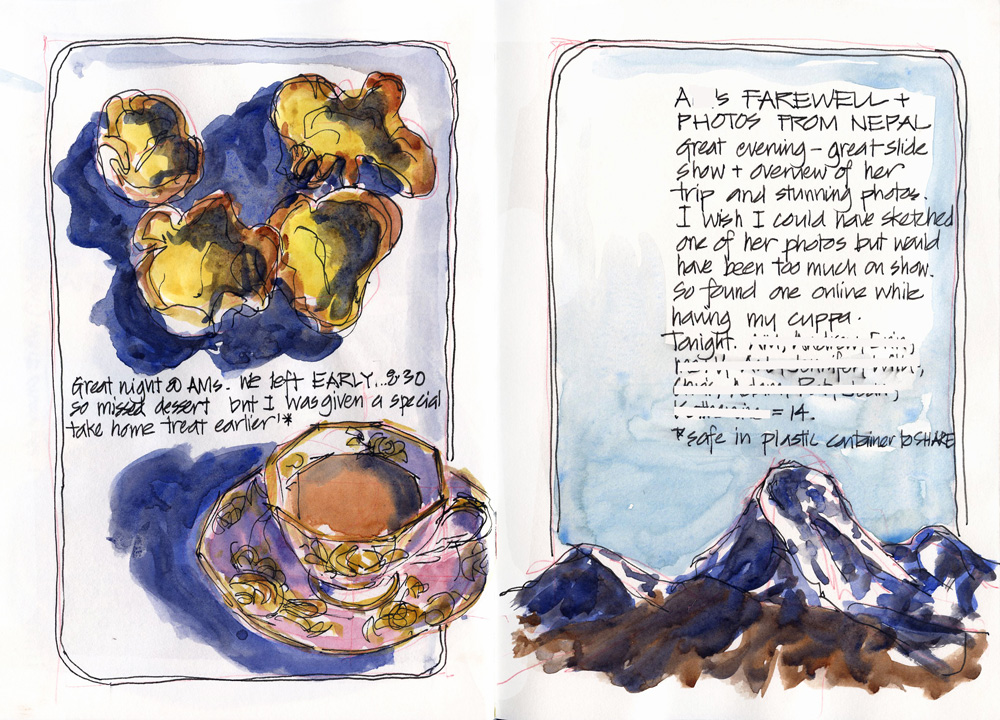 Great night @ AMs. We left EARLY...8:30
so missed dessert but I was given a special
take home treat earlier!*
A 's FAREWELL +
PHOTOS FROM NEPAL
great evening - great slide
show + overview of her
trip and stunning photos.
I wish I could have sketched
one of her photos but would
have been too much on show.
So found one online while
having my cuppa.
Tonight.
= 14.
*safe in plastic container to SHARE